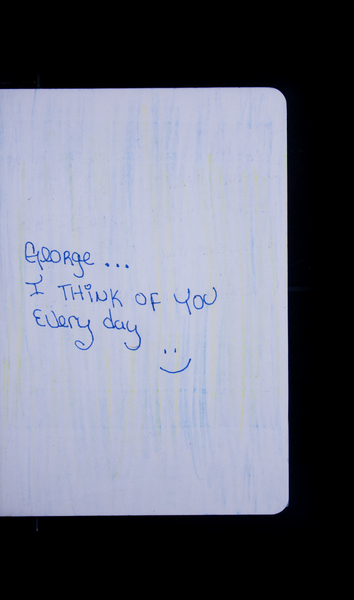 George...
I THiNK OF YOU
Every day